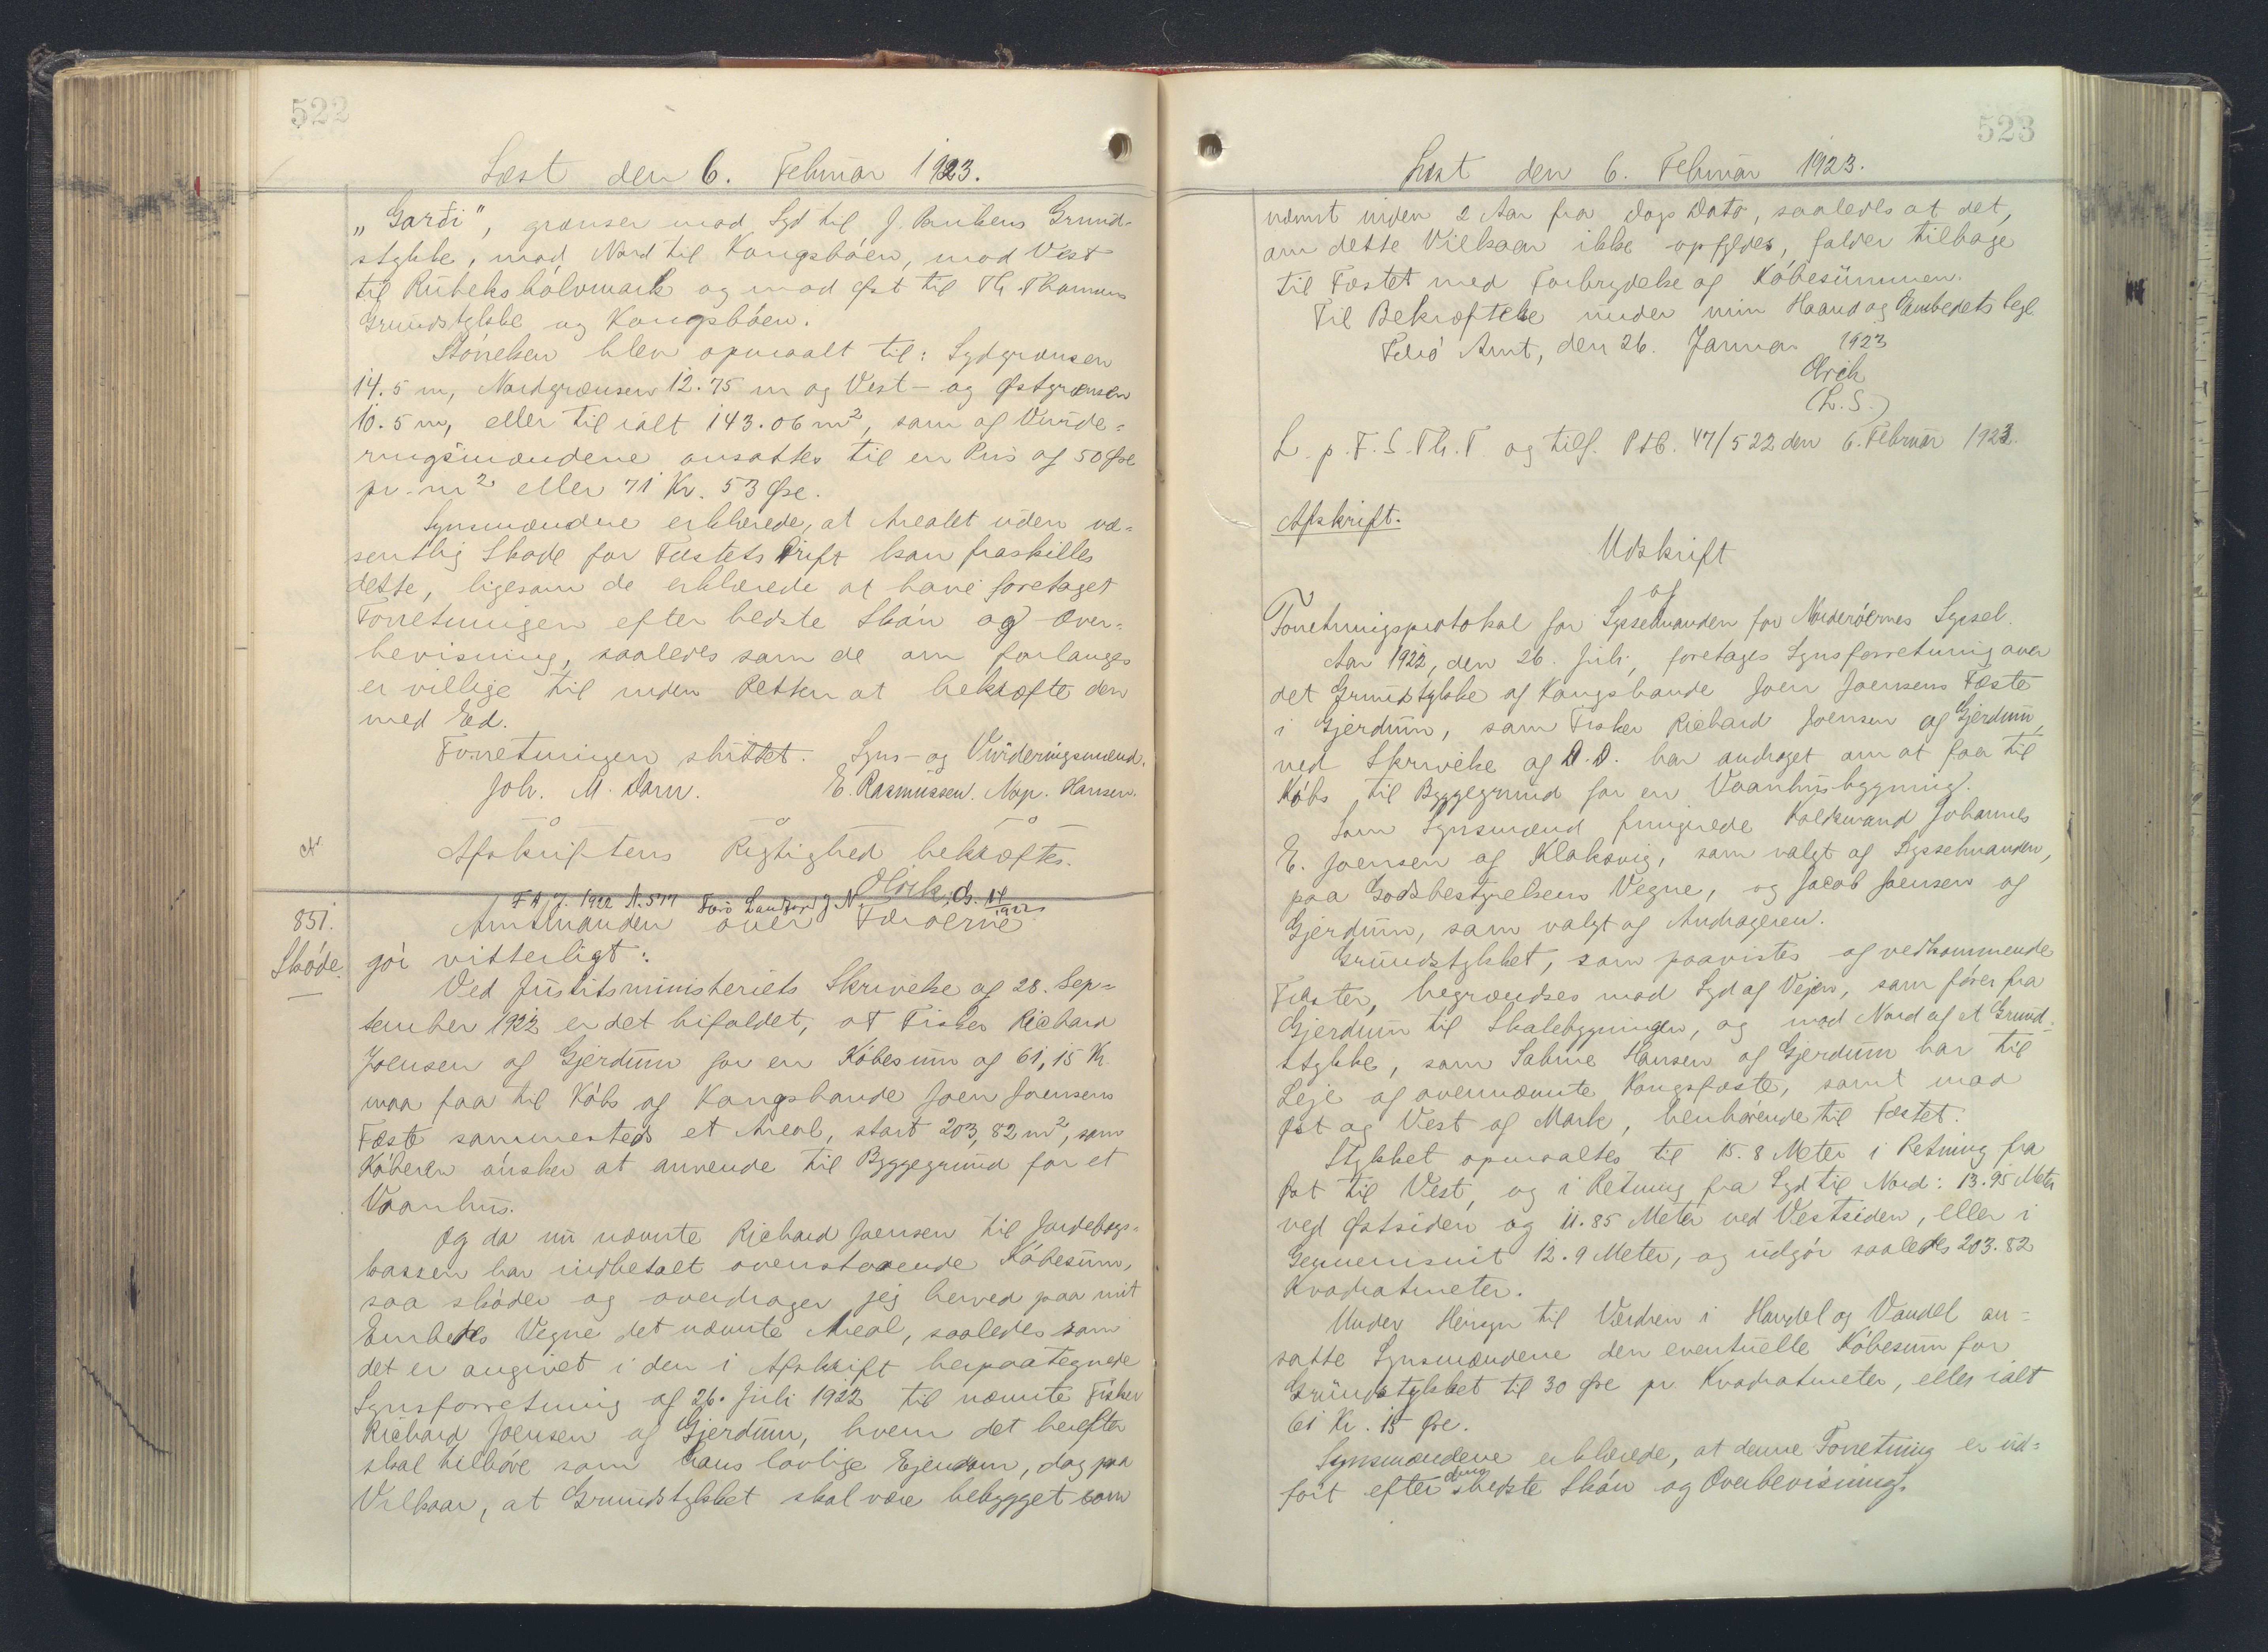 522
Læst den 6. Februar 1923.
„Garði", grænser mod Syd til J. Grund-
stykke, mod Nord til Kongsbøen, mod Vest
til Rubeksbólvmark og mod Øst til Th. Thomsens
Grundstykke og Kongsbøen.
Størrelsen blev opmaalt til: Sydgrænsen
14.5 m, Nordgrænsen 12.75 m og Vest- og Østgrænsen
10.5 m, eller til ialt 143.06 m², som af Vurde-
ringsmændene ansattes til en Pris af 50 Øre
pr. m² eller 71 Kr. 53 Øre.
Synsmændene erklærede, at Arealet uden væ-
sentlig Skade for Fæstets Drift kan fraskilles
dette, ligesom de erklærede at have foretaget
Forretningen efter bedste Skøn og Over-
bevisning, saaledes som de om forlanges
er villige til inden Retten at bekræfte den
med Ed.
Forretningen sluttet. Syns- og Vurderingsmænd.
Joh. M. Dam. E. Rasmussen. Nap. Hansen.
Afskriftens Rigtighed bekræftes.
Olrik
851.
Skøde.
FA J. 1922 N. 577 Færø Landfog J. N.
Amtmanden over Færøerne
gør vitterligt:
Ved Justitsministeriets Skrivelse af 28. Sep-
tember 1922 er det bifaldet, at Fisker Richard
Joensen af Gjerdum for en Købesum af 61,15 Kr.
maa faa til Købs af Kongsbonde Joen Joensens
Fæste sammesteds et Areal, stort 203,82 m², som
Køberen ønsker at anvende til Byggegrund for et
Vaanhus.
Og da nu nævnte Richard Joensen til Jordebogs-
kassen har indbetalt ovenstaaende Købesum,
saa skøder og overdrager jeg herved paa mit
Embeds Vegne det nævnte Areal, saaledes som
det er angivet i den i Afskrift herpaategnede
Synsforretning af 26. Juli 1922 til nævnte Fisker
Richard Joensen af Gjerdum, hvem det herefter
skal tilhøre som hans lovlige Ejendom, dog paa
Vilkaar, at Grundstykket skal være bebygget som
523
Læst den 6. Februar 1923.
nævnt inden 2 Aar fra Dags Dato, saaledes at det,
om dette Vilkaar ikke opfyldes, falder tilbage
til Fæstet med Forbrydelse af Købesummen.
Til Bekræftelse under min Haand og Embedets Segl.
Færø Amt, den 26. Januar 1923
Olrik
(L.S.)
L. p. F. S. Th. T og tilf. P&B. 47/522 den 6. Februar 1923.
Afskrift.
Udskrift
af
Forretningsprotokol for Sysselmanden for Norderøernes Syssel.
Aar 1922, den 26. Juli, foretages Synsforretning over
det Grundstykke af Kongsbonde Joen Joensens Fæste
i Gjerdum, som Fisker Richard Joensen af Gjerdum,
ved Skrivelse af D.D. har andraget om at faa til
Købs til Byggegrund for en Vaanhusbygning.
Som Synsmænd fungerede Johannes
E. Joensen af Klaksvig, som valgt af Sysselmanden,
paa Godsbestyrelsens Vegne, og Jacob Joensen af
Gjerdum, som valgt af Andrageren.
Grundstykket, som paavistes af vedkommende
Fæster, begrændses mod Syd af Vejen, som fører fra
Gjerdum til Skolebygningen, og mod Nord af et Grund-
stykke, som Sabine Hansen af Gjerdum har til
Leje af ovennævnte Kongsfæste, samt mod
Øst og Vest af Mark, henhørende til Fæstet.
Stykket opmaaltes til 15.8 Meter i Retning fra
Øst til Vest, og i Retning fra Syd til Nord: 13.95 Meter
ved Østsiden og 11.85 Meter ved Vestsiden, eller i
Gennemsnit 12.9 Meter, og udgør saaledes 203.82
Kvadratmeter.
Under Hensyn til Værdien i Handel og Vandel an-
satte Synsmændene den eventuelle Købesum for
Grundstykket til 30 Øre pr Kvadratmeter, eller ialt
61 Kr. 15 Øre.
Synsmændene erklærede, at denne Forretning er ud-
ført efter deres bedste Skøn og Overbevisning.